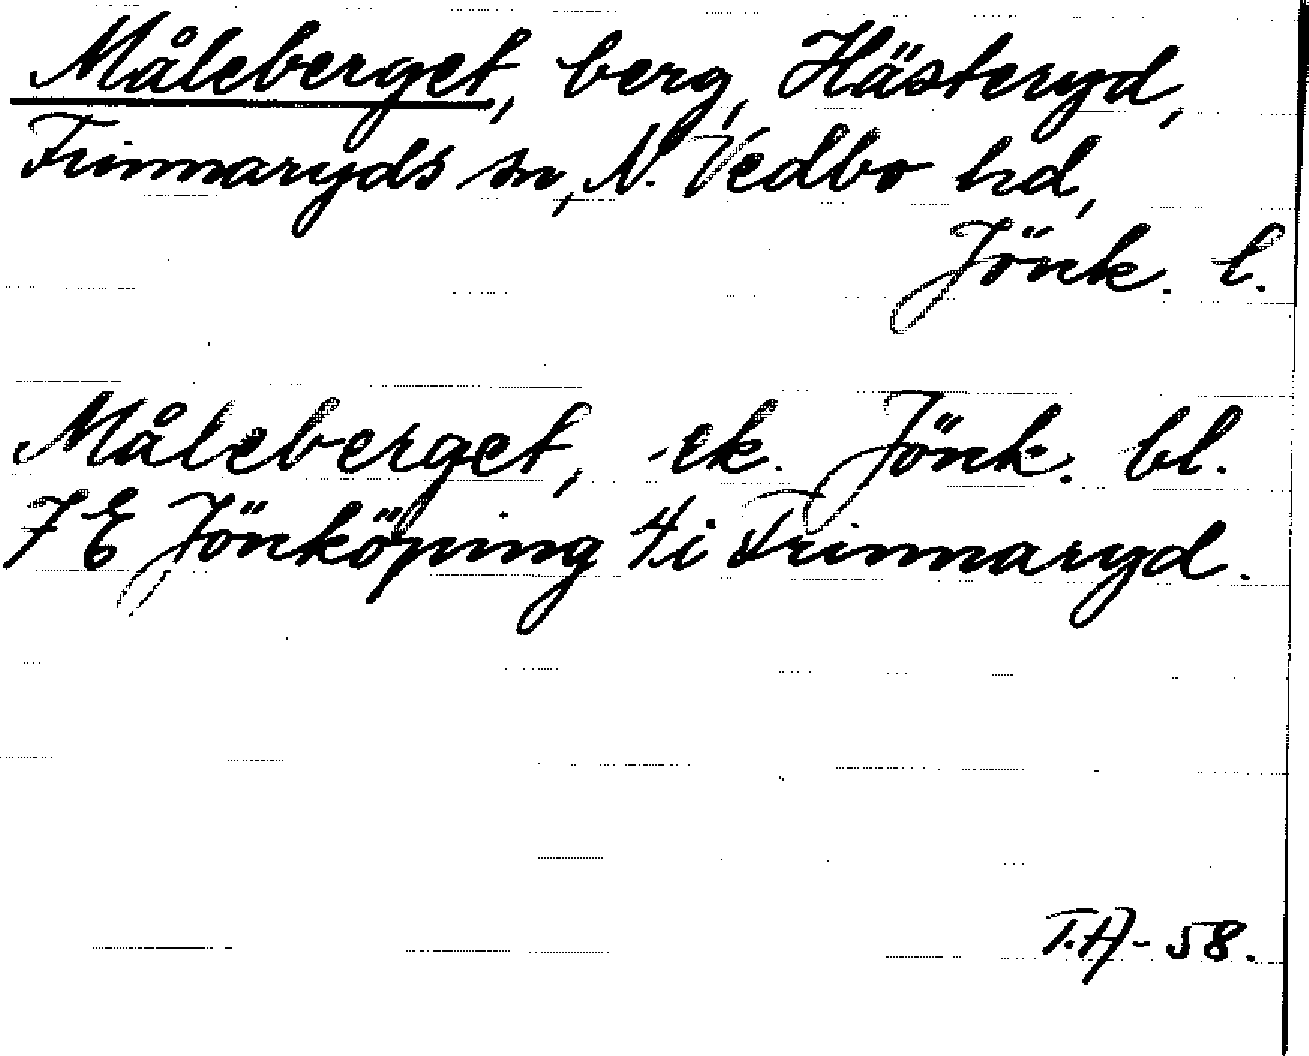 Måleberget, berg, Hästeryd,
Frinnaryds sn, N. Vedbo hd,
Jönk. l.
Måleberget, -ek. Jönk. bl.
7E Jönköping 4i Frinnaryd.
T.A - 58.